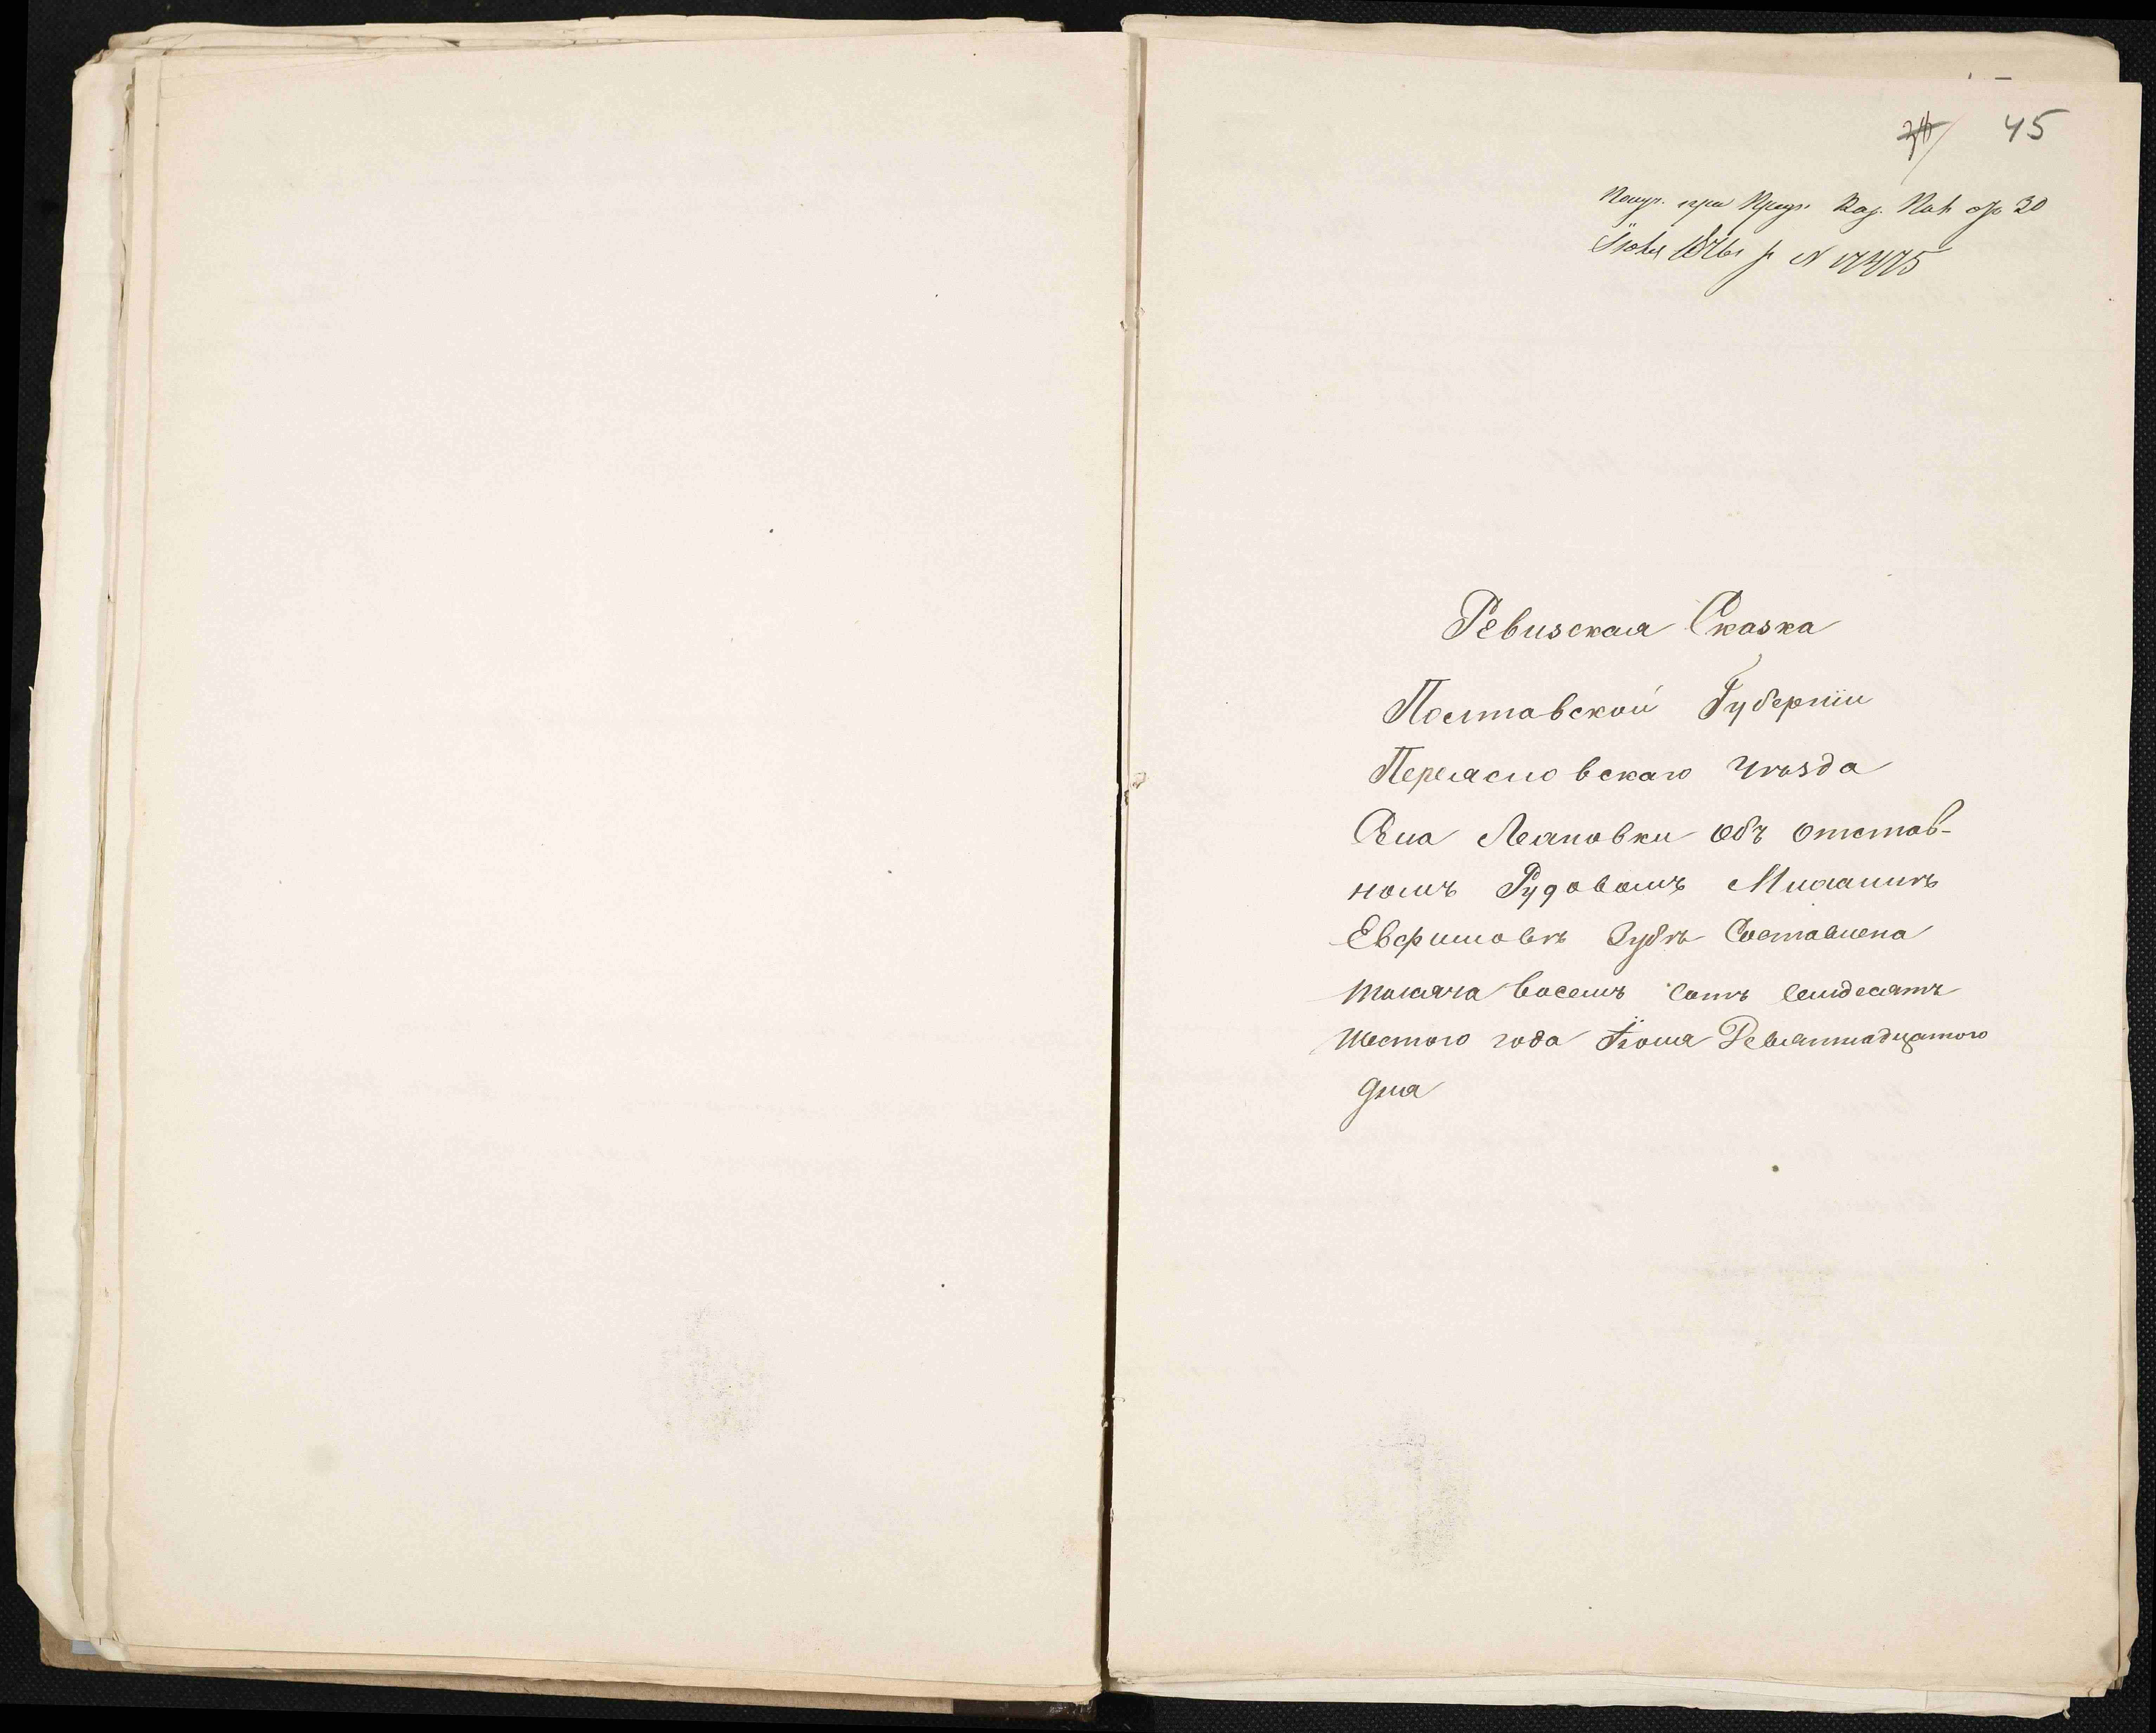 45
Получ. при Предп. Каз. Пал. отъ 30
Іюня 1876 г. N 17475
Ревизская Сказка
Полтавской Губерніи
Переяславскаго Уѣзда
Села Лялповки объ отстав-
номъ Рядовомъ Михаилѣ
Евфимовѣ Зубѣ Составлена
тысяча восемъ сотъ семдесятъ
Шестого года Іюня Девятнадцатого
дня